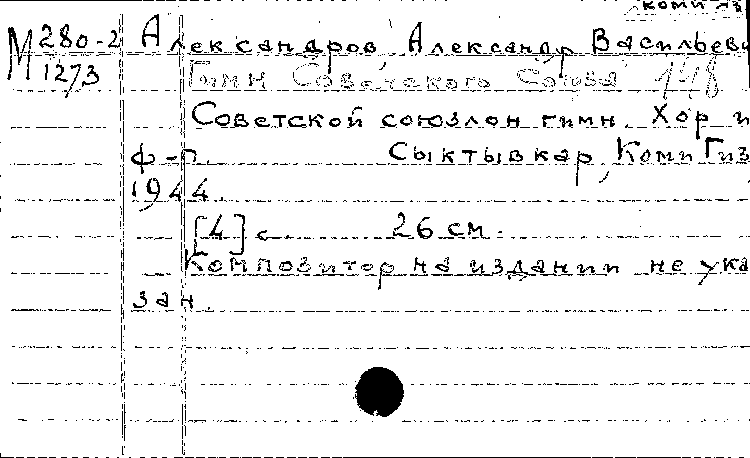 коми яз
М 280-2 Александров, Александр Васильеви
1273 Гимн Советского Союза 148
Советской союзлон гимн. Хор и
ф-п. Сыктывкар, Коми Гиз
1944.
[4] с. 26 см.
Композитор на издании не ука
зан.